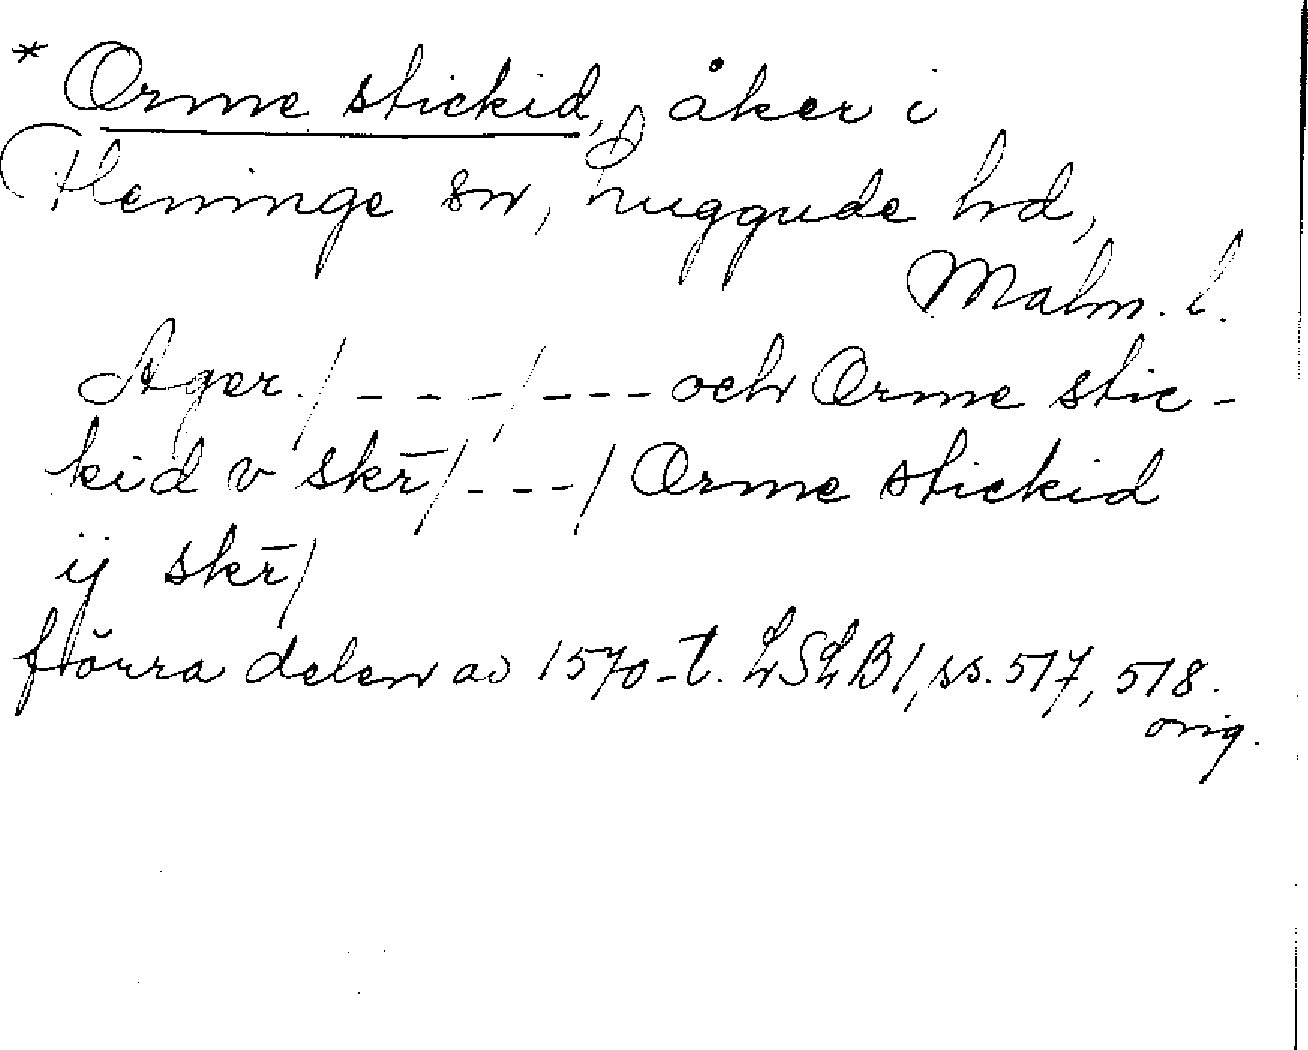 * Orme stickid, åker i
Fleninge sn, Luggude hd,
Malm. l.
Ager. / - - - / - - - och Orme stic-
kid v skr̄ / - - - / Orme stickid
ij skr̄ /
förra delen av 1570-t. LSLB 1, ss. 517, 518.
orig.